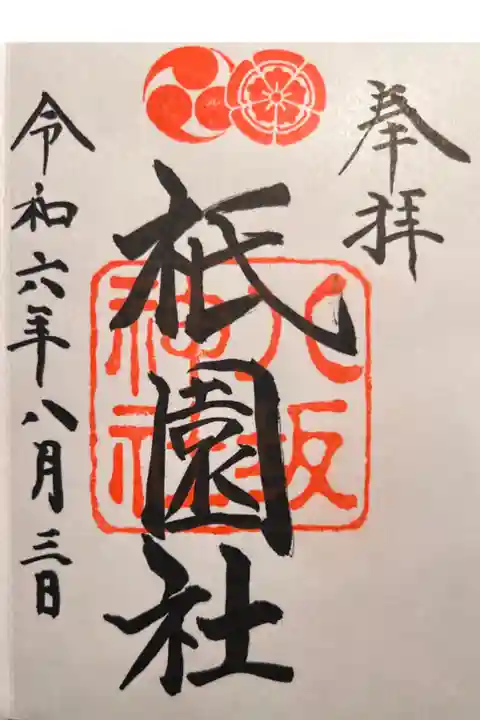 奉拝
八坂
神社
祇園社
令和六年八月三日